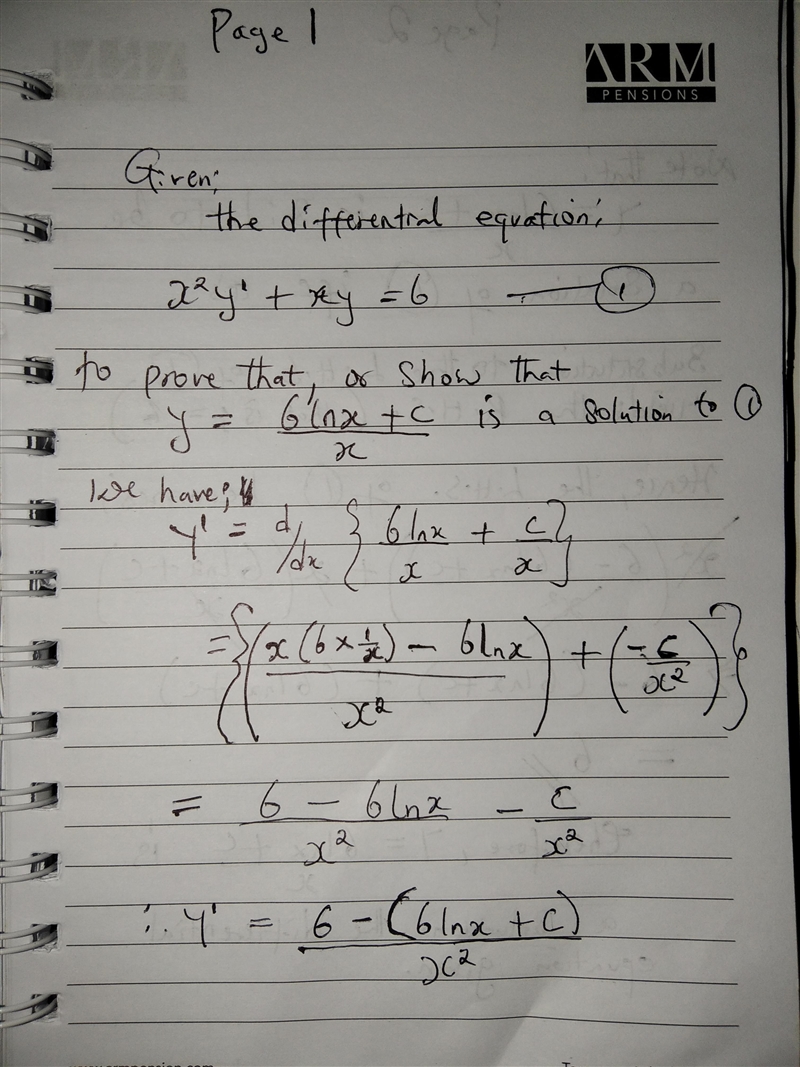 Page 1
ARM
PENSIONS
Given;
the differential equation;
x²y' + xy = 6 —— ①
to prove that, or show that
y = (6lnx + c)/x is a solution to ①
We have;
y' = d/dx { 6lnx/x + c/x }
= { ( (x(6 × 1/x) - 6lnx)/x² ) + ( -c/x² ) }
= (6 - 6lnx)/x² - c/x²
∴ y' = (6 - (6lnx + c))/x²